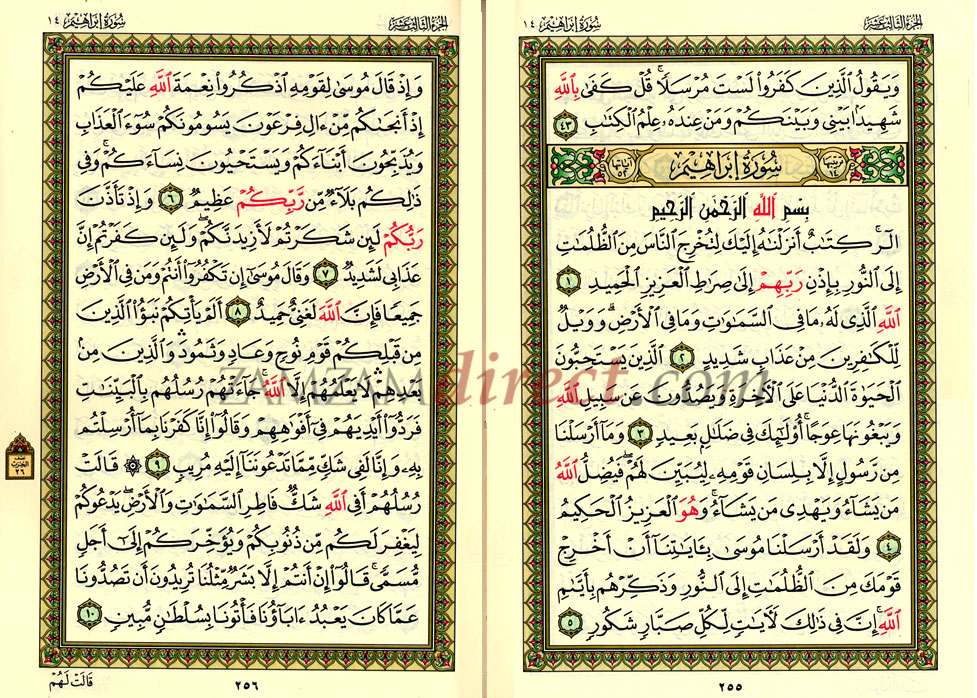 الجزء الثالث عشر
سورة إبراهيم ١٤
وَيَقُولُ ٱلَّذِينَ كَفَرُوا۟ لَسْتَ مُرْسَلًا ۚ قُلْ كَفَىٰ بِٱللَّهِ
شَهِيدًۢا بَيْنِى وَبَيْنَكُمْ وَمَنْ عِندَهُۥ عِلْمُ ٱلْكِتَٰبِ ٤٣
ترتيبها ١٤ سُورَةُ إِبْرَاهِيمَ آياتها ٥٢
بِسْمِ ٱللَّهِ ٱلرَّحْمَٰنِ ٱلرَّحِيمِ
الٓر ۚ كِتَٰبٌ أَنزَلْنَٰهُ إِلَيْكَ لِتُخْرِجَ ٱلنَّاسَ مِنَ ٱلظُّلُمَٰتِ
إِلَى ٱلنُّورِ بِإِذْنِ رَبِّهِمْ إِلَىٰ صِرَٰطِ ٱلْعَزِيزِ ٱلْحَمِيدِ ١
ٱللَّهِ ٱلَّذِى لَهُۥ مَا فِى ٱلسَّمَٰوَٰتِ وَمَا فِى ٱلْأَرْضِ ۗ وَوَيْلٌ
لِّلْكَٰفِرِينَ مِنْ عَذَابٍ شَدِيدٍ ٢ ٱلَّذِينَ يَسْتَحِبُّونَ
ٱلْحَيَوٰةَ ٱلدُّنْيَا عَلَى ٱلْءَاخِرَةِ وَيَصُدُّونَ عَن سَبِيلِ ٱللَّهِ
وَيَبْغُونَهَا عِوَجًا ۚ أُو۟لَٰٓئِكَ فِى ضَلَٰلٍۭ بَعِيدٍ ٣ وَمَآ أَرْسَلْنَا
مِن رَّسُولٍ إِلَّا بِلِسَانِ قَوْمِهِۦ لِيُبَيِّنَ لَهُمْ ۖ فَيُضِلُّ ٱللَّهُ
مَن يَشَآءُ وَيَهْدِى مَن يَشَآءُ ۚ وَهُوَ ٱلْعَزِيزُ ٱلْحَكِيمُ
٤ وَلَقَدْ أَرْسَلْنَا مُوسَىٰ بِـَٔايَٰتِنَآ أَنْ أَخْرِجْ
قَوْمَكَ مِنَ ٱلظُّلُمَٰتِ إِلَى ٱلنُّورِ وَذَكِّرْهُم بِأَيَّىٰمِ
ٱللَّهِ ۚ إِنَّ فِى ذَٰلِكَ لَءَايَٰتٍ لِّكُلِّ صَبَّارٍ شَكُورٍ ٥
٢٥٥
الجزء الثالث عشر
سورة إبراهيم ١٤
وَإِذْ قَالَ مُوسَىٰ لِقَوْمِهِ ٱذْكُرُوا۟ نِعْمَةَ ٱللَّهِ عَلَيْكُمْ
إِذْ أَنجَىٰكُم مِّنْ ءَالِ فِرْعَوْنَ يَسُومُونَكُمْ سُوٓءَ ٱلْعَذَابِ
وَيُذَبِّحُونَ أَبْنَآءَكُمْ وَيَسْتَحْيُونَ نِسَآءَكُمْ ۚ وَفِى
ذَٰلِكُم بَلَآءٌ مِّن رَّبِّكُمْ عَظِيمٌ ٦ وَإِذْ تَأَذَّنَ
رَبُّكُمْ لَئِن شَكَرْتُمْ لَأَزِيدَنَّكُمْ ۖ وَلَئِن كَفَرْتُمْ إِنَّ
عَذَابِى لَشَدِيدٌ ٧ وَقَالَ مُوسَىٰٓ إِن تَكْفُرُوٓا۟ أَنتُمْ وَمَن فِى ٱلْأَرْضِ
جَمِيعًا فَإِنَّ ٱللَّهَ لَغَنِىٌّ حَمِيدٌ ٨ أَلَمْ يَأْتِكُمْ نَبَؤُا۟ ٱلَّذِينَ
مِن قَبْلِكُمْ قَوْمِ نُوحٍ وَعَادٍ وَثَمُودَ ۛ وَٱلَّذِينَ مِنۢ
بَعْدِهِمْ ۛ لَا يَعْلَمُهُمْ إِلَّا ٱللَّهُ ۚ جَآءَتْهُمْ رُسُلُهُم بِٱلْبَيِّنَٰتِ
فَرَدُّوٓا۟ أَيْدِيَهُمْ فِىٓ أَفْوَٰهِهِمْ وَقَالُوٓا۟ إِنَّا كَفَرْنَا بِمَآ أُرْسِلْتُم
بِهِۦ وَإِنَّا لَفِى شَكٍّ مِّمَّا تَدْعُونَنَآ إِلَيْهِ مُرِيبٍ ٩ ۞ قَالَتْ
رُسُلُهُمْ أَفِى ٱللَّهِ شَكٌّ فَاطِرِ ٱلسَّمَٰوَٰتِ وَٱلْأَرْضِ ۖ يَدْعُوكُمْ
لِيَغْفِرَ لَكُم مِّن ذُنُوبِكُمْ وَيُؤَخِّرَكُمْ إِلَىٰٓ أَجَلٍ
مُّسَمًّى ۚ قَالُوٓا۟ إِنْ أَنتُمْ إِلَّا بَشَرٌ مِّثْلُنَا تُرِيدُونَ أَن تَصُدُّونَا
عَمَّا كَانَ يَعْبُدُ ءَابَآؤُنَا فَأْتُونَا بِسُلْطَٰنٍ مُّبِينٍ ١٠
٢٥٦
قَالَتْ لَهُمْ
نصف الحزب ٢٦
ZAMZAMdirect.com